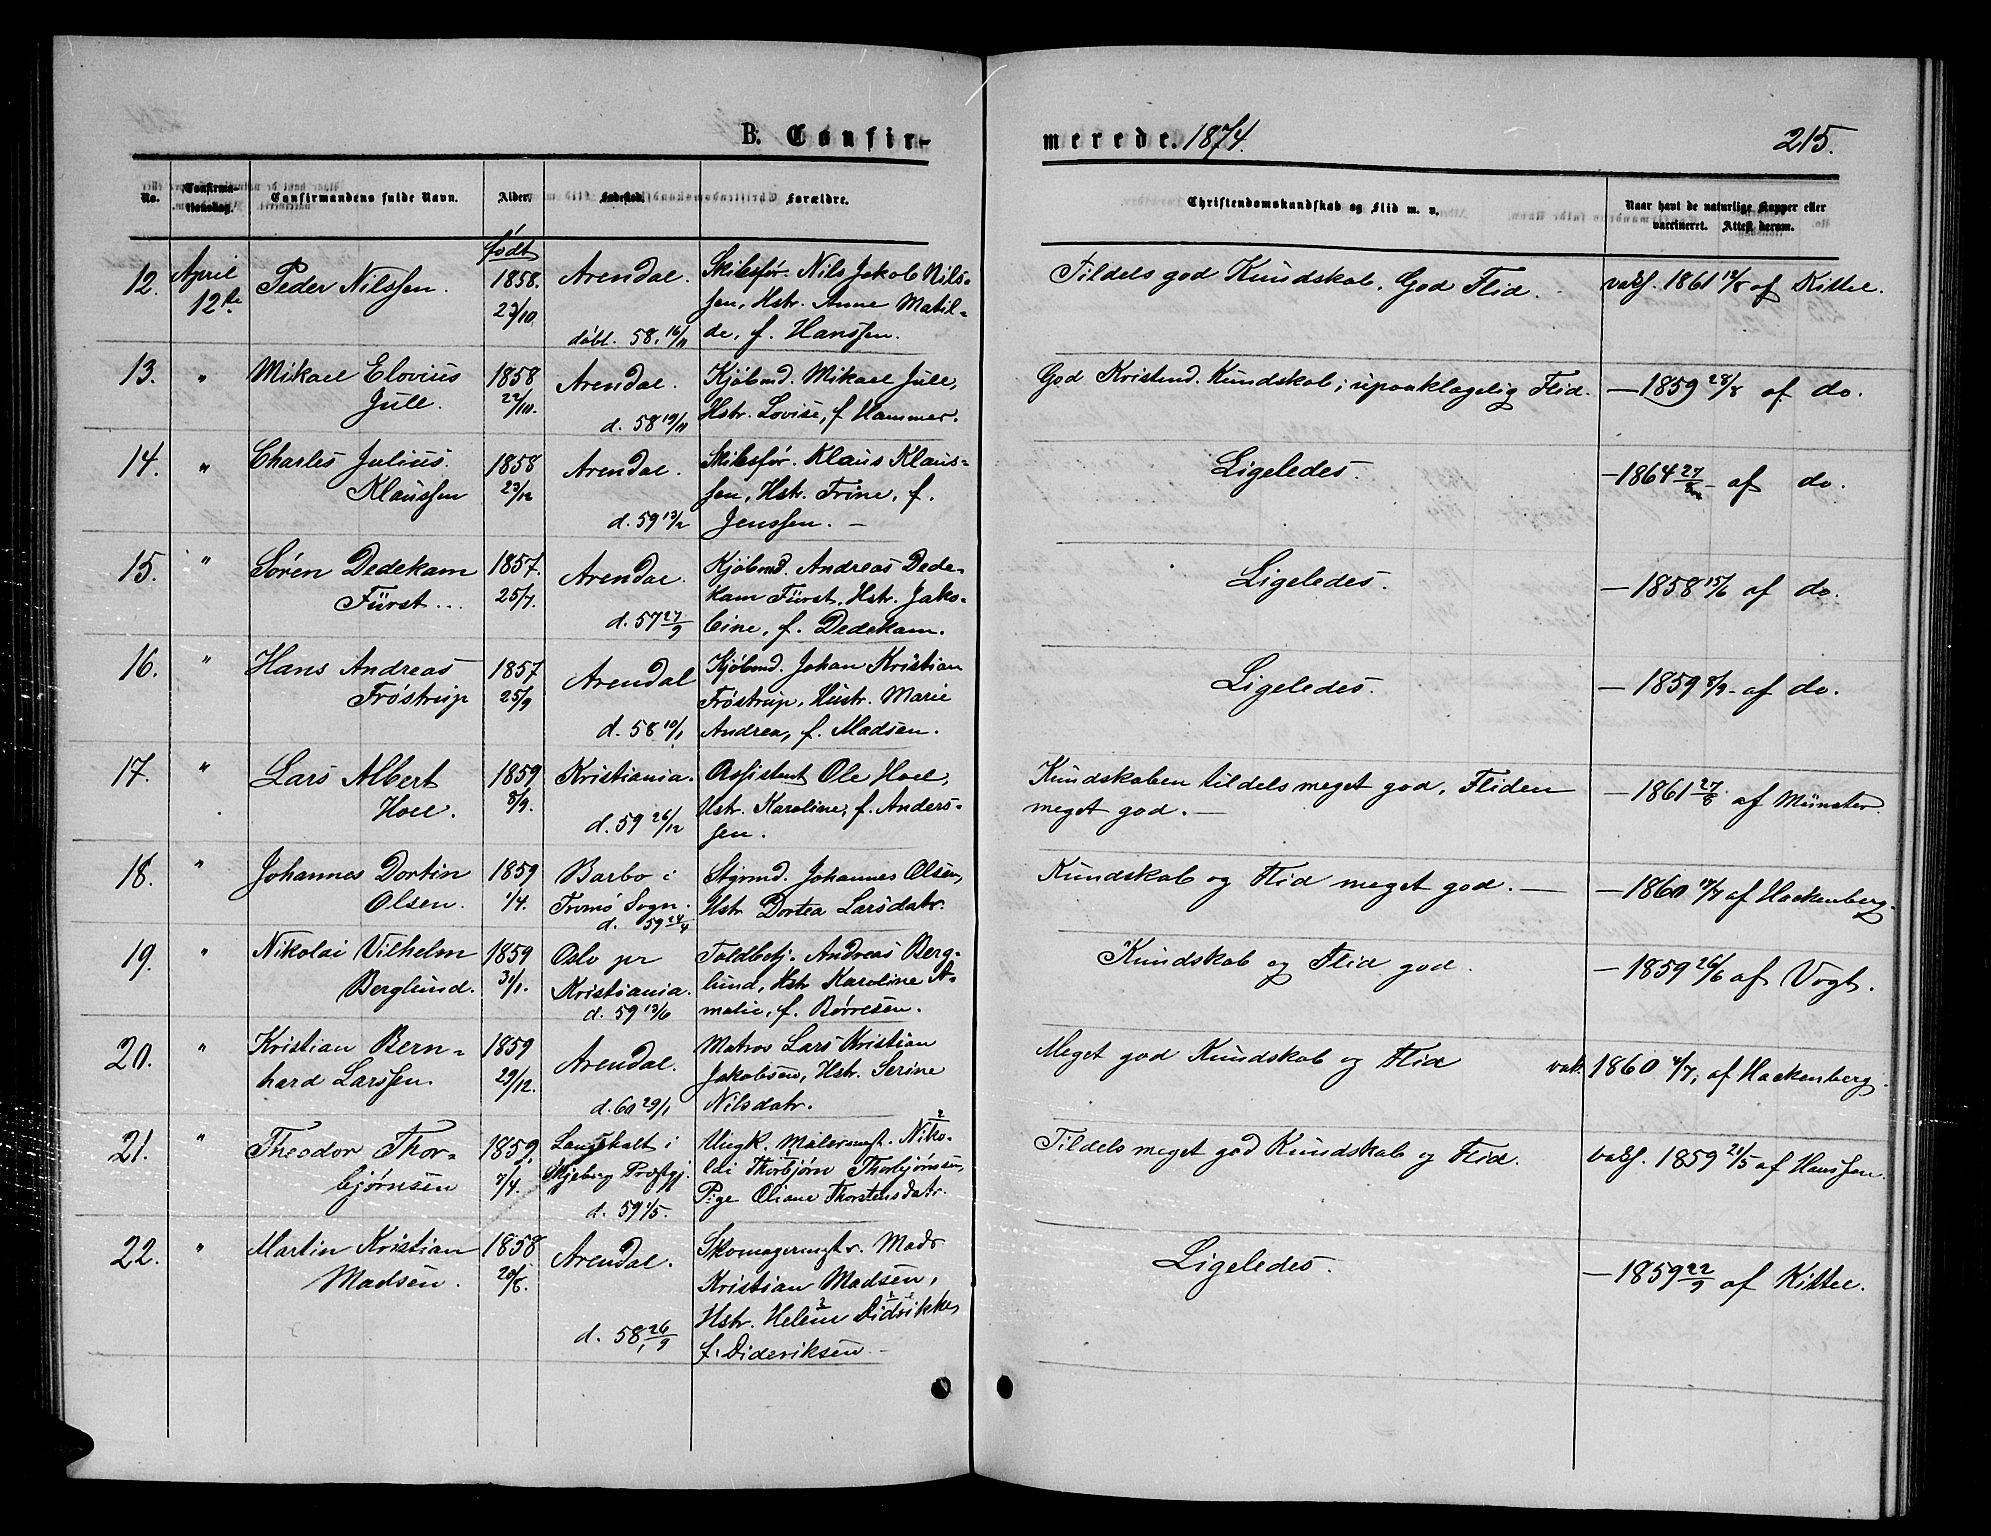 B. Confir-
merede. 1874.
215.
No.
Confirma-
tionsdag.
Confirmandens fulde Navn.
Alder.
Fødested.
Forældre.
Christendomskundskab og Flid m. v.
Naar havt de naturlige Kopper eller
vaccineret. Attest derom.
født
12. April 12te Peder Nilssen. 1858. 23/10. Arendal. døbt. 58, 16/11
Skibsfør. Nils Jakob Nils-
sen, Hstr. Anne Matil-
de, f. Hanssen.
Tildels god Kundskab. God Flid.
vaks. 1861 af Kittel.
13. " Mikael Elovius
Juel. 1858 22/10. Arendal. d. 58 19/11
Kjøbmd. Mikael Juel,
Hstr. Lovise, f. Hammer.
God Kristend. Kundskab; upaaklagelig Flid.
— 1859 28/8 af do.
14. " Charles Julius
Klaussen 1858 23/12 Arendal. d. 59 13/2
Skibsfør. Klaus Klaus-
sen, Hstr. Trine, f.
Jenssen. —
Ligeledes.
— 1864 af do.
15. " Søren Dedekam
Fürst... 1857. 25/7. Arendal. d. 57 27/9
Kjøbmd. Andreas Dede-
kam Fürst, Hstr. Jako-
bine, f. Dedekam.
Ligeledes.
— 1858 15/6 af do.
16. " Hans Andreas
Frøstrup 1857 25/9 Arendal d. 58 10/1
Kjøbmd. Johan Kristian
Frøstrup, Hustr. Marie
Andrea, f. Madsen.
Ligeledes.
— 1859 8/9 - af do.
17. " Lars Albert
Hoel. 1859 8/9. Kristiania. d. 59 26/12
Assistent Ole Hoel,
Hstr. Karoline, f. Anders-
sen.
Kundskaben tildels meget god, Fliden
meget god. —
— 1861 27/8 af Münster.
18. " Johannes Dortin
Olsen. 1859 1/4. Barbo i
Tromø Sogn. d. 59 24/4
Styrmd. Johannes Olsen,
Hstr Dortea Larsdatr.
Kundskab og Flid meget god. —
— 1860 af Hackenberg.
19. " Nikolai Vilhelm
Berglund. 1859 31/1. Oslo pr
Kristiania. d. 59 13/6
Toldbetj. Andreas Berg-
lund, Hstr Karoline A-
malie, f. Børresen.
Kundskab og Flid god.
— 1859 26/6 af Vogt.
20. " Kristian Bern-
hard Larssen. 1859 29/12. Arendal. d. 60 29/1
Matros Lars Kristian
Jakobsen, Hstr. Serine
Nilsdatr.
Meget god Kundskab og Flid
vak. 1860 4/7, af Hackenberg.
21. " Theodor Thor-
bjørnsen 1859, 7/4. Langholt i
Skjeberg Præstgj. d. 59 1/5.
Ungk. Malersvt. Niko-
lai Thorbjørn Thorbjørnsen,
Pige Oliane Thorstensdatr.
Tildels meget god Kundskab og Flid.
vaks. 1859 21/5 af Hanssen.
22. " Martin Kristian
Madsen. 1858 20/8. Arendal. d. 58, 26/9
Skomagermstr. Mads
Kristian Madsen,
Hstr. Helene Didrikke,
f. Dideriksen -
Ligeledes.
— 1859 22/9 af Kittel.